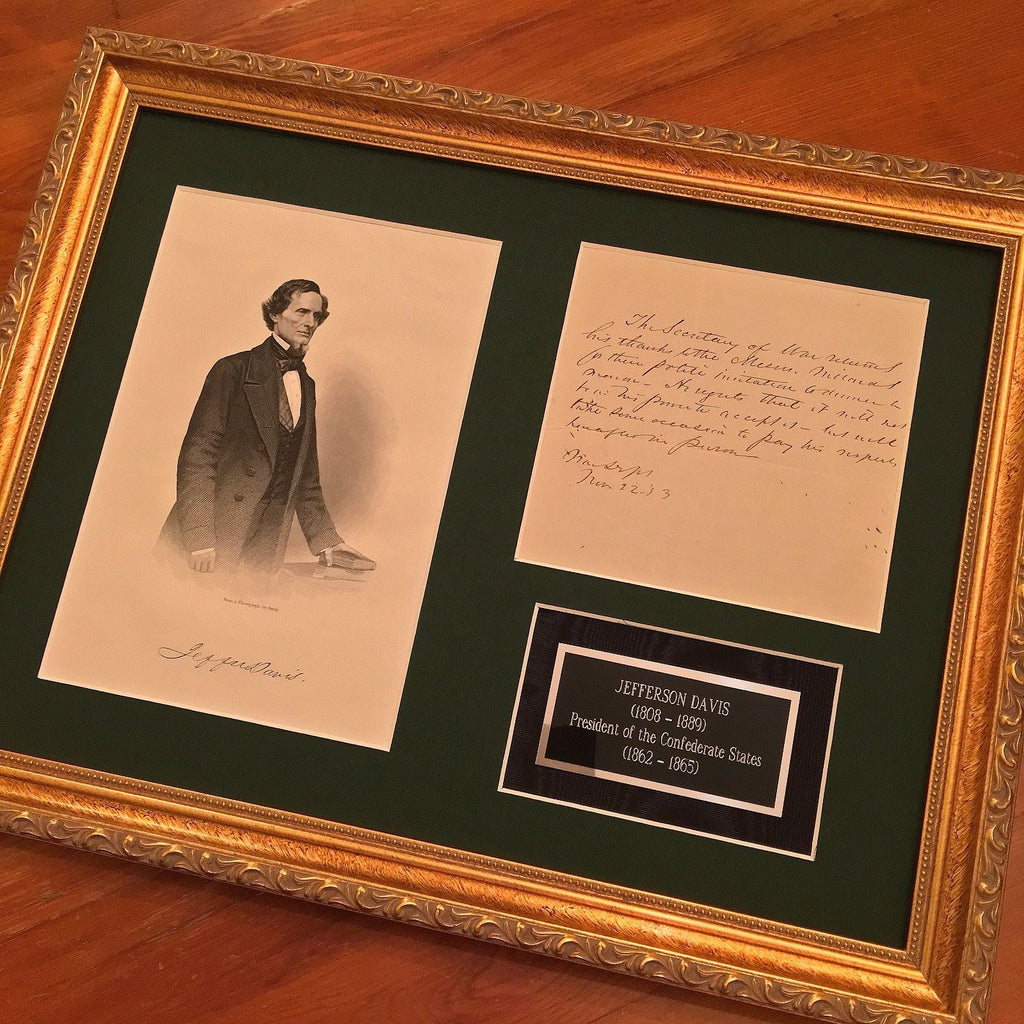 From a Photograph by Brady
Jeffer Davis.
The Secretary of War returns
his thanks to the Messrs.
for their polite invitation to dinner
that it will not
be in his power to accept it - but will
take some occasion to pay his respects
hereafter in person
Nov. 22
JEFFERSON DAVIS
(1808 – 1889)
President of the Confederate States
(1862 – 1865)